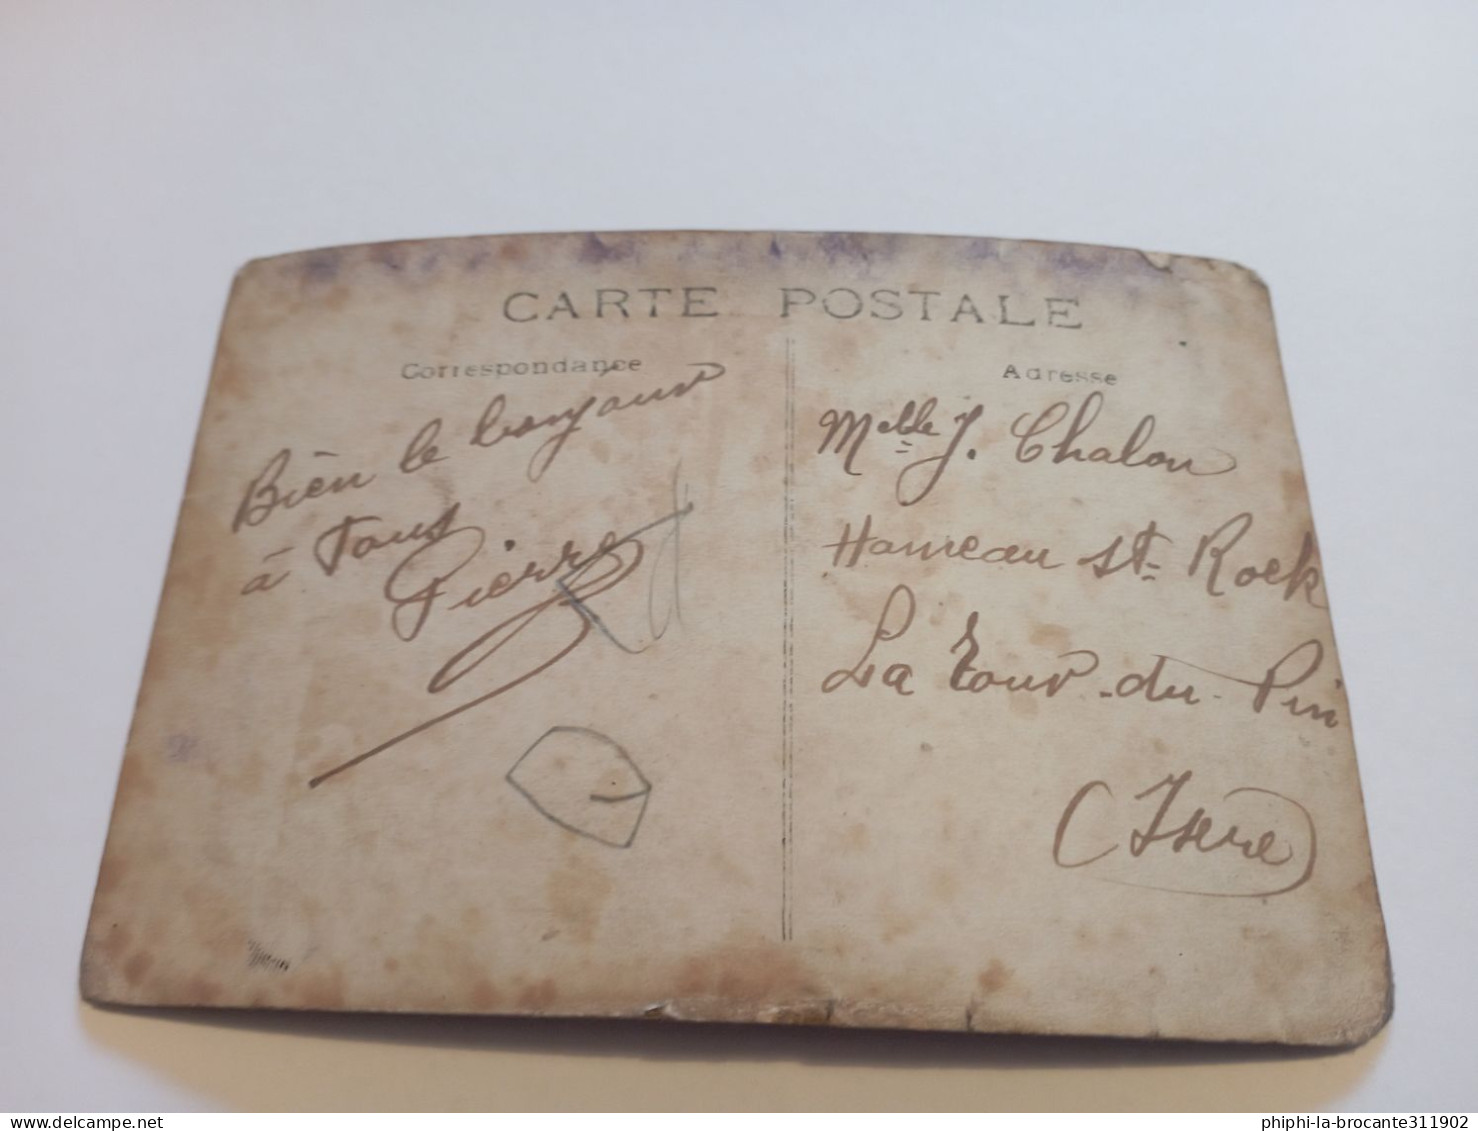 CARTE POSTALE
Correspondance
Bien le bonjour
à Tous
Pierre
Adresse
Melle J. Chalon
Hameau St Rock
La Tour-du-Pin
(Isère)
phiphi-la-brocante311902